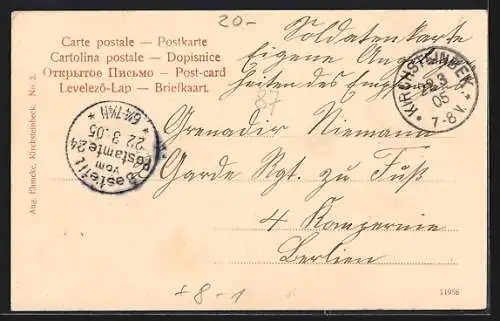 20-
Carte postale — Postkarte
Cartolina postale — Dopisnice
Открытое Письмо — Post-card
Levelező-Lap — Briefkaart.
Soldatenkarte
Eigene Angelegen-
heiten des Empfängers
87
KIRCHSTEINBEK.
22.3
05
* 7-8 V. *
Bestellt
vom
Postamte 24
22 3. 05
Grenadir Niemann
Garde Rgt. zu Fuß
4 Kompernie
Berlien
Aug. Ehmcke, Kirchsteinbeck. No. 2.
+8-1
11956